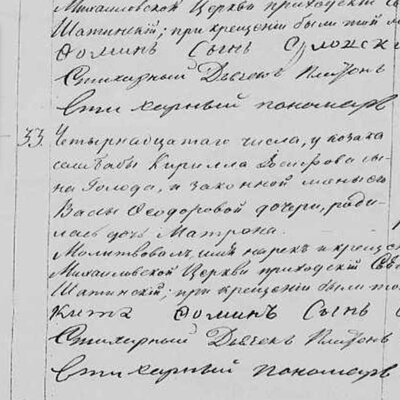 Михаиловской Церкви приходскій С
Шатинскій; при крещеніи были той
Ѳоминъ Сынъ
Стихарный Дьячекъ Платонъ
Стихарный пономарь
33. Четырнадцатаго числа, у козака
Кирилла Іосифова сы-
на Голода, и законной жены его
Васы Ѳеодоровой дочери, роди-
лась дочь Матрона.
Молитвовалъ, имя нарекъ и крещ
Михаиловской Церкви приходскій Свя
Шатинскій; при крещеніи были то
Ѳоминъ Сынъ
Стихарный Дьячекъ Платонъ
Стихарный пономарь